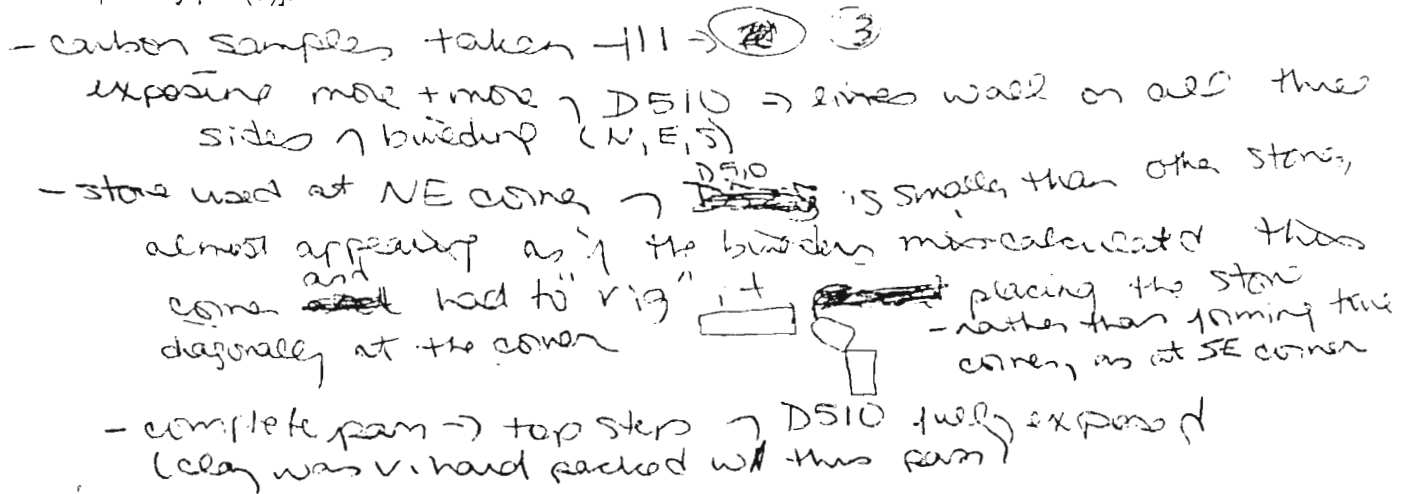 - carbon samples taken -|||→ 3
exposing more + more of D510 → lines wall on all three
sides of building (N, E, S)
- stone used at NE corner of D510 is smaller than other stones,
almost appearing as if the builders miscalculated this
corner and had to "rig" it placing the stone
diagonally at the corner - rather than forming true
corner, as at SE corner
- complete pass → top steps of D510 fully exposed
(clay was v. hard packed w/ this pass)